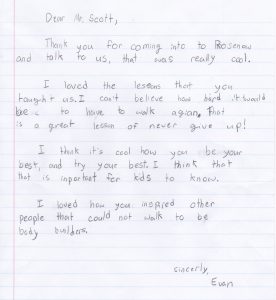 Dear Mr. Scott,
Thank you for coming into to Rosenow
and talk to us, that was really cool.
I loved the lessons that you
taught us. I can't believe how hard it would
be to have to walk again, that
is a great lesson of never give up!
I think it's cool how you be your
best, and try your best. I think that
that is inportant for kids to know.
I loved how you inspired other
people that could not walk to be
body builders.
sincerly,
Evan